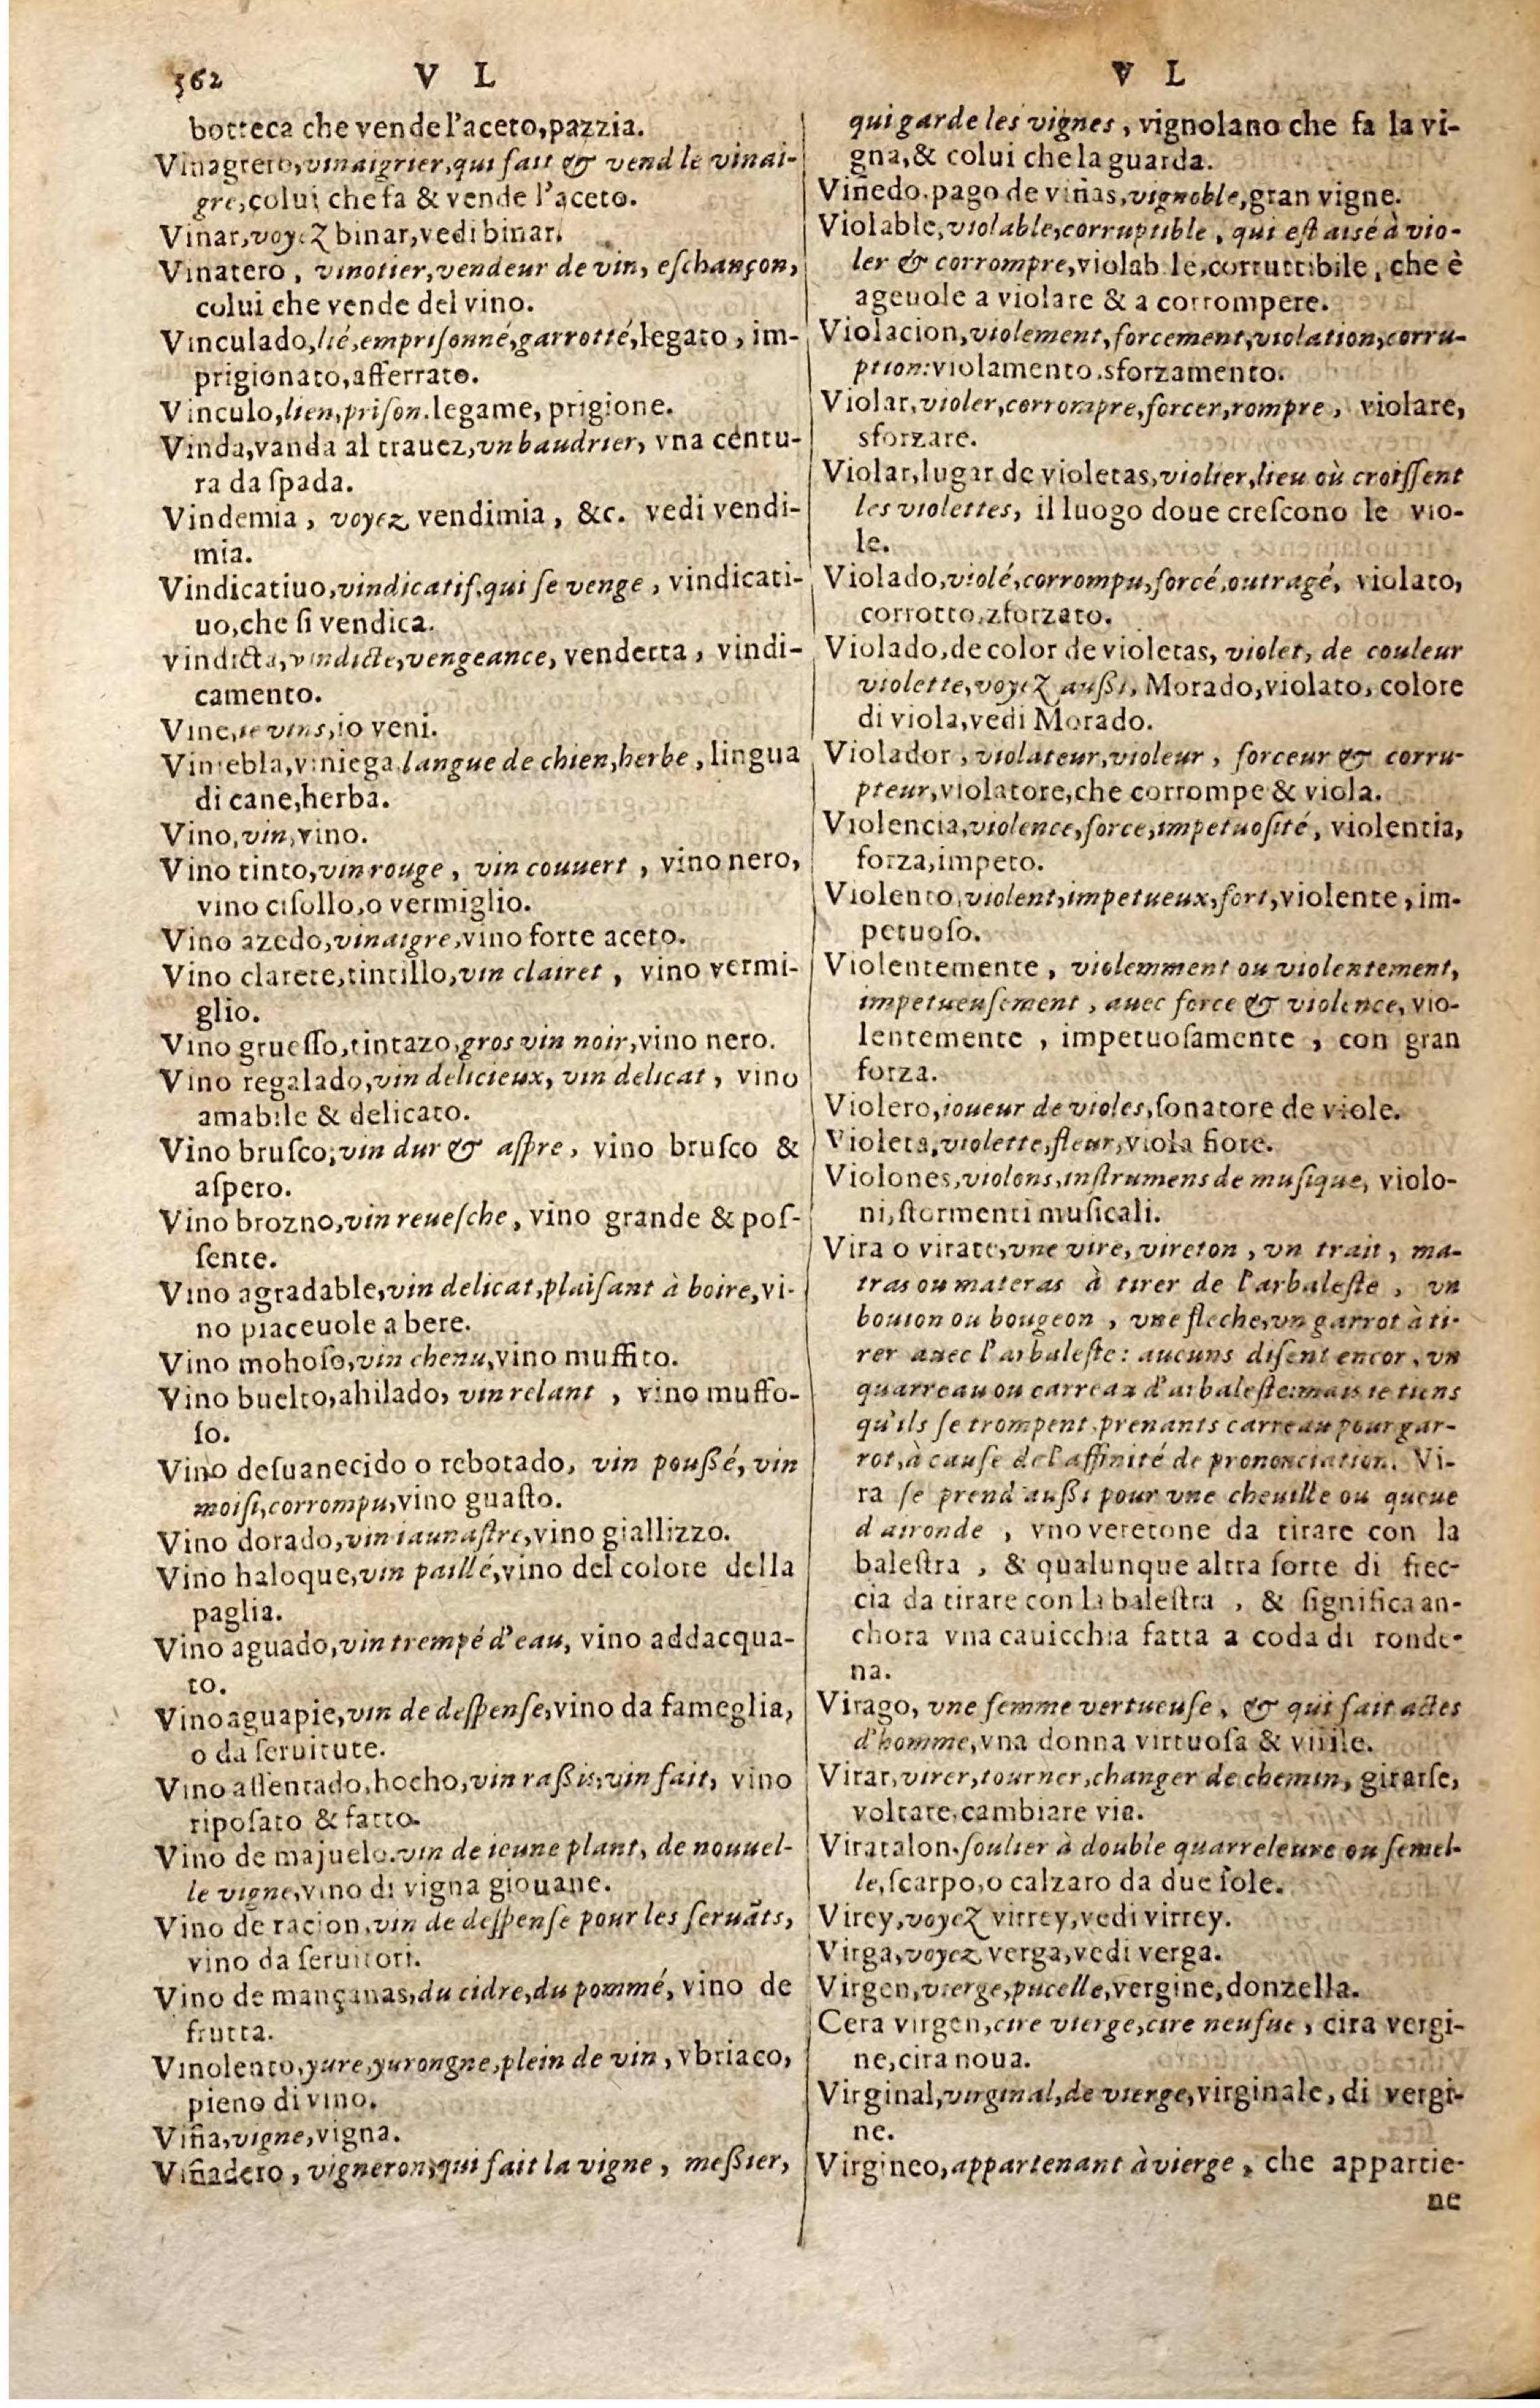 562 V L
botteca che vende l'aceto,pazzia.
Vinagrero,vinaigrier,qui fait & vend le vinai-
gre,colui che fa & vende l'aceto.
Vinar,voyez binar,vedi binar.
Vinatero, vinotier,vendeur de vin, eſchançon,
colui che vende del vino.
Vinculado,lié,empriſonné,garrotté,legato, im-
prigionato,afferrato.
Vinculo,lien,priſon.legame, prigione.
Vinda,vanda al trauez,vn baudrier, vna centu-
ra da ſpada.
Vindemia, voyez vendimia, &c. vedi vendi-
mia.
Vindicatiuo,vindicatif.qui ſe venge, vindicati-
uo,che ſi vendica.
vindicta,vindicte,vengeance, vendetta, vindi-
camento.
Vine,ie vins,io veni.
Viniebla,viniega langue de chien,herbe, lingua
di cane,herba.
Vino,vin,vino.
Vino tinto,vin rouge, vin couuert, vino nero,
vino ciſollo,o vermiglio.
Vino azedo,vinaigre,vino forte aceto.
Vino clarete,tintillo,vin clairet, vino vermi-
glio.
Vino grueſſo,tintazo,gros vin noir,vino nero.
Vino regalado,vin delicieux, vin delicat, vino
amabile & delicato.
Vino bruſco,vin dur & aſpre, vino bruſco &
aſpero.
Vino brozno,vin reueſche, vino grande & poſ-
ſente.
Vino agradable,vin delicat,plaiſant à boire,vi-
no piaceuole a bere.
Vino mohoſo,vin chenu,vino muffito.
Vino buelto,ahilado, vin relant, vino muffo-
ſo.
Vino deſuanecido o rebotado, vin poußé, vin
moiſi,corrompu,vino guaſto.
Vino dorado,vin iaunaſtre,vino giallizzo.
Vino haloque,vin paillé,vino del colore della
paglia.
Vino aguado,vin trempé d'eau, vino addacqua-
to.
Vino aguapie,vin de deſpenſe,vino da fameglia,
o da ſeruitute.
Vino aſſentado,hocho,vin raßis,vin fait, vino
ripoſato & fatto.
Vino de majuelo.vin de ieune plant, de nouuel-
le vigne,vino di vigna giouane.
Vino de racion,vin de deſpenſe pour les ſeruãts,
vino da ſeruitori.
Vino de mançanas,du cidre,du pommé, vino de
frutta.
Vinolento,yure,yurongne,plein de vin, vbriaco,
pieno di vino.
Viña,vigne,vigna.
Viñadero, vigneron,qui fait la vigne, meßier,
V L
qui garde les vignes, vignolano che fa la vi-
gna,& colui che la guarda.
Viñedo.pago de viñas,vignoble,gran vigne.
Violable,violable,corruptible, qui eſt aisé à vio-
ler & corrompre,violab le,corruttibile, che è
ageuole a violare & a corrompere.
Violacion,violement,forcement,violation,corru-
ption:violamento.sforzamento.
Violar,violer,corrompre,forcer,rompre, violare,
sforzare.
Violar,lugar de violetas,violier,lieu où croiſſent
les violettes, il luogo doue creſcono le vio-
le.
Violado,violé,corrompu,forcé,outragé, violato,
corrotto,zforzato.
Violado,de color de violetas, violet, de couleur
violette,voyez außi, Morado,violato, colore
di viola,vedi Morado.
Violador, violateur,violeur, forceur & corru-
pteur,violatore,che corrompe & viola.
Violencia,violence,force,impetuoſité, violentia,
forza,impeto.
Violento,violent,impetueux,fort,violente, im-
petuoſo.
Violentemente, violemment ou violentement,
impetueuſement, auec force & violence, vio-
lentemente, impetuoſamente, con gran
forza.
Violero,ioueur de violes,ſonatore de viole.
Violeta,violette,fleur,viola fiore.
Violones,violons,inſtrumens de muſique, violo-
ni,ſtormenti muſicali.
Vira o virate,vne vire, vireton, vn trait, ma-
tras ou materas à tirer de l'arbaleſte, vn
bouton ou bougeon, vne fleche,vn garrot à ti-
rer auec l'arbaleſte: aucuns diſent encor, vn
quarreau ou carreau d'arbaleſte:mais ie tiens
qu'ils ſe trompent,prenants carreau pour gar-
rot,à cauſe de l'affinité de prononciation. Vi-
ra ſe prend außi pour vne cheuille ou queue
d'aironde, vno veretone da tirare con la
baleſtra, & qualunque altra ſorte di frec-
cia da tirare con la baleſtra, & ſignifica an-
chora vna cauicchia fatta a coda di ronde-
na.
Virago, vne femme vertueuſe, & qui fait actes
d'homme,vna donna virtuoſa & virile.
Virar,virer,tourner,changer de chemin, girarſe,
voltare,cambiare via.
Viratalon.ſoulier à double quarreleure ou ſemel-
le,ſcarpo,o calzaro da due ſole.
Virey,voyez virrey,vedi virrey.
Virga,voyez verga,vedi verga.
Virgen,vierge,pucelle,vergine,donzella.
Cera virgen,cire vierge,cire neufue, cira vergi-
ne,cira noua.
Virginal,virginal,de vierge,virginale, di vergi-
ne.
Virgineo,appartenant à vierge, che appartie-
ne